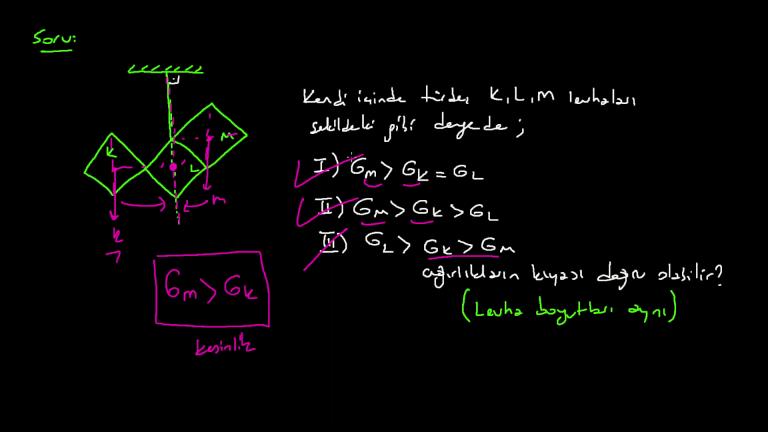 Soru:
Kendi içinde türdeş K, L, M levhaları
şekildeki gibi dengede;
I) Gm > Gk = GL
II) Gm > Gk > GL
III) GL > Gk > Gm
ağırlıkların kıyası doğru olabilir?
(Levha boyutları aynı)
K
L
M
k
m
Gm > Gk
kesinlik